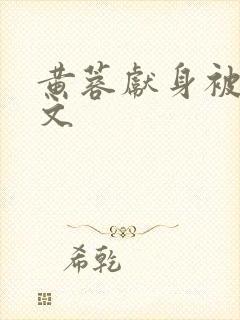 黄蓉献身被
文
希乾